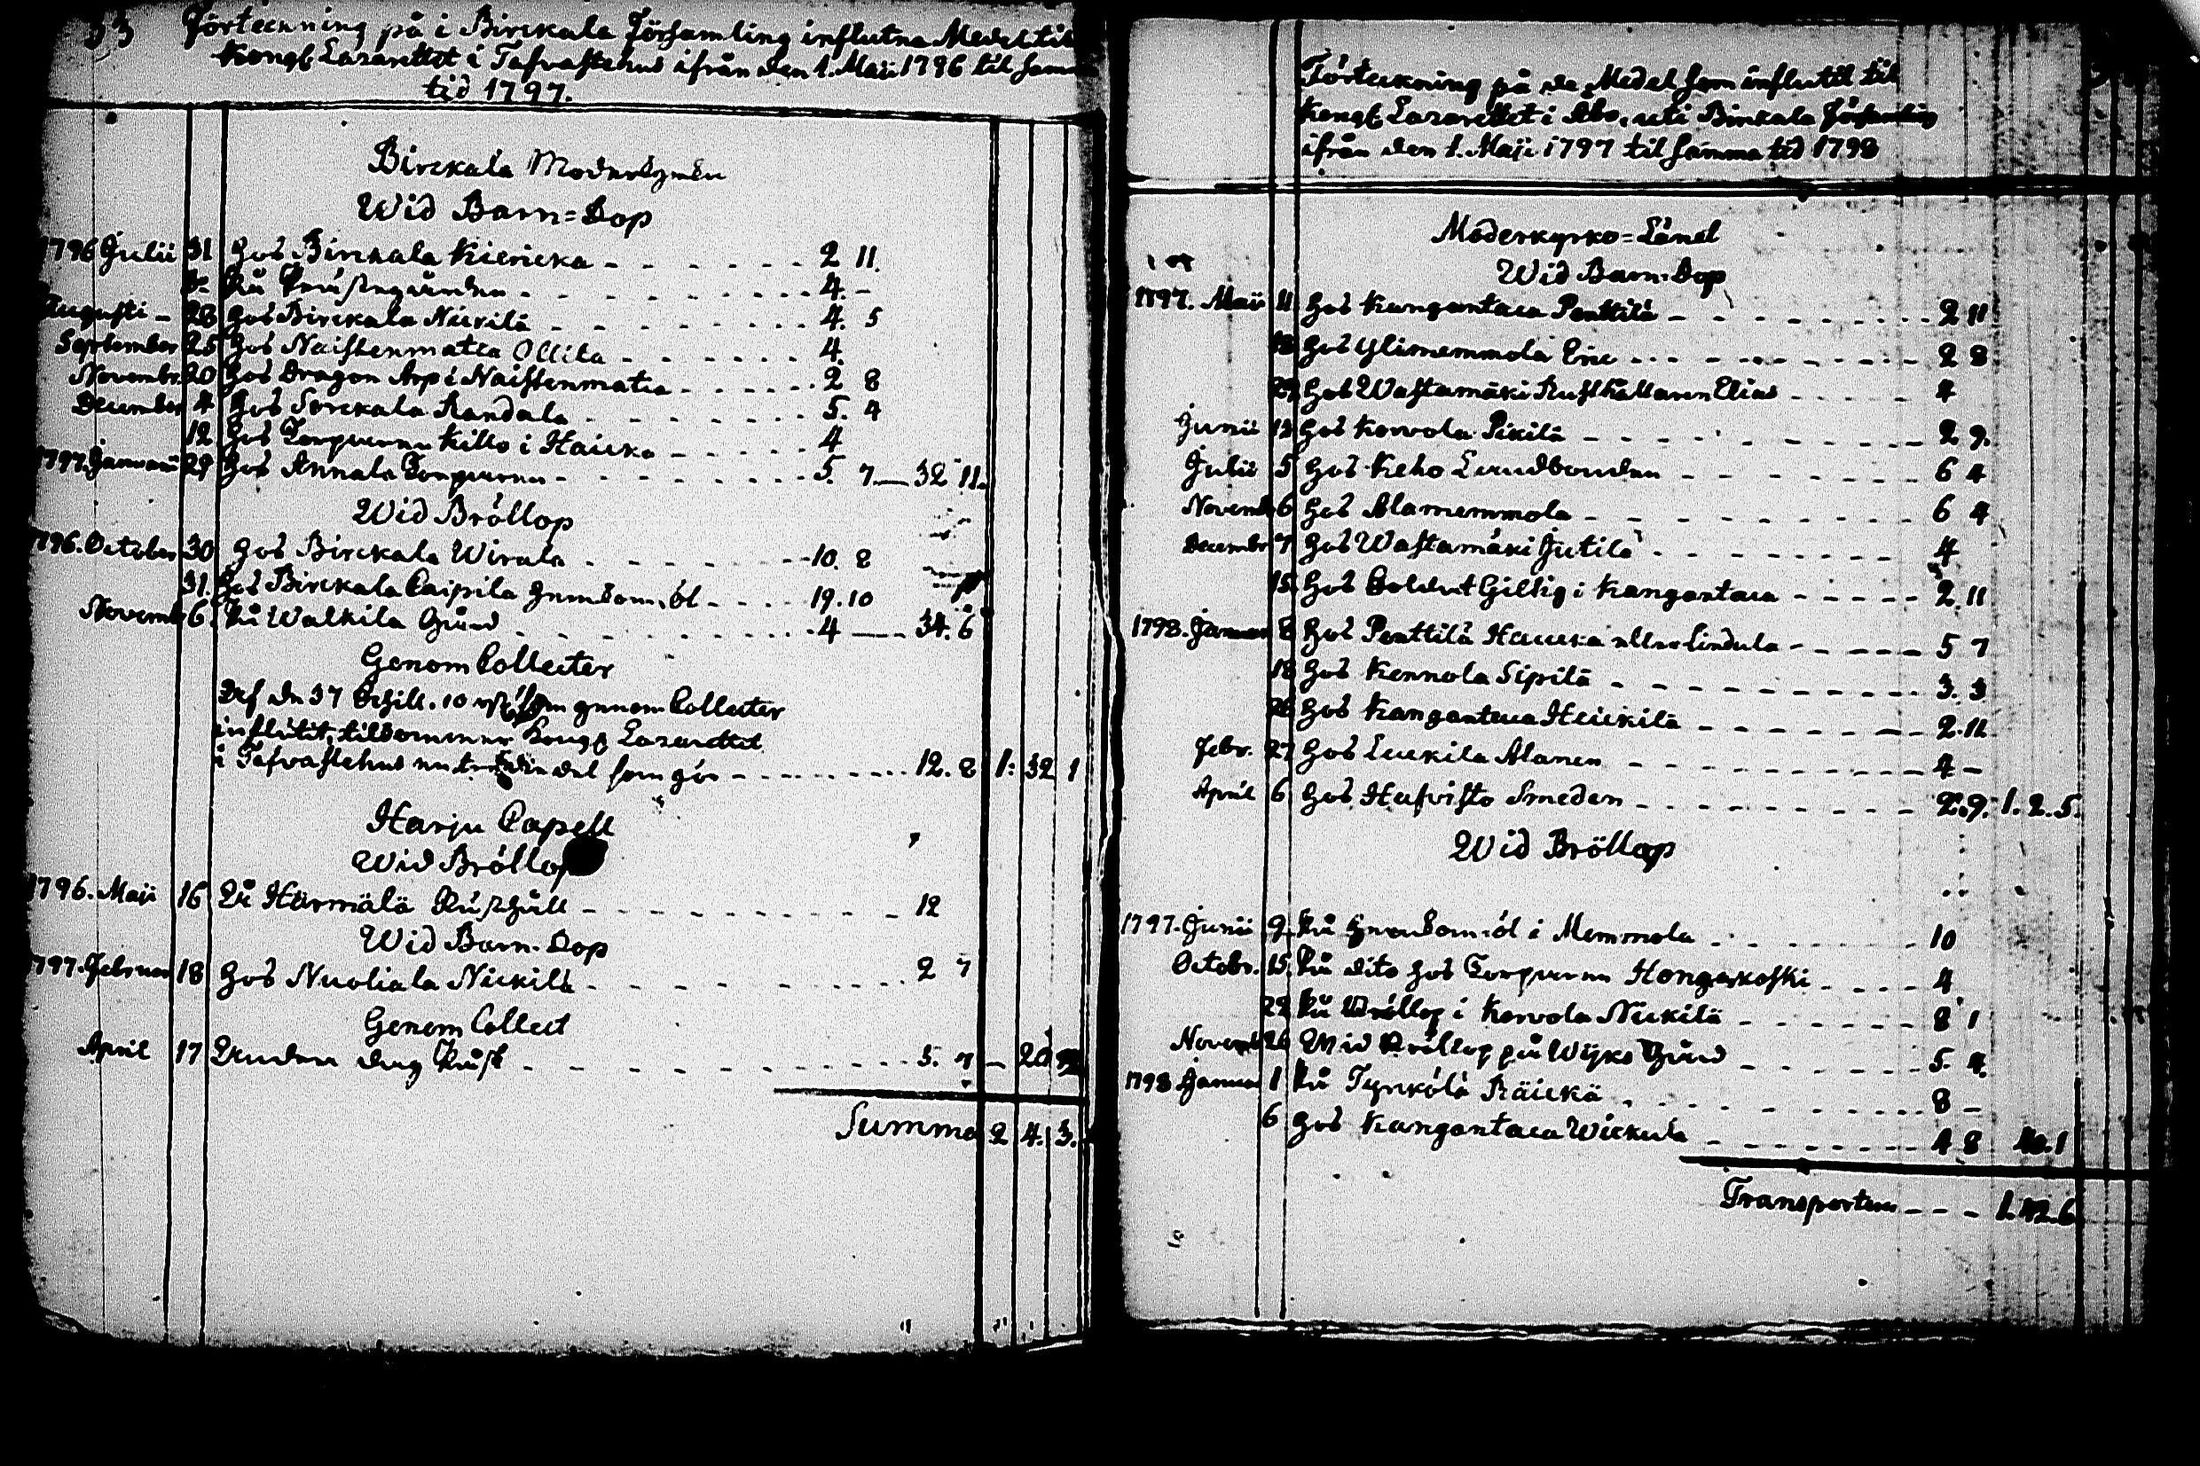 33
Förteckning på i Birckala Församling influtna Medel til
Kongl. Lazarettet i Tafvastehus ifrån den 1. Maji 1796 til samma
tid 1797.
Birckala Moderkyrckn
Wid Barn=Dop
1796 Julii 31 Hos Birckala Kiericka - - - - - - 2 11.
Do På Prästegården - - - - - - - - 4. -
Augusti - 28 Hos Birckala Nickilä - - - - - - - 4. 5
September 25 Hos Naistenmatka Ollila - - - - - - 4.
Novembr. 20 Hos Dragon Arp i Naistenmatka - - - - - 2 8
December 4 Hos Sorckala Randala - - - - - - - 5. 4
12 Hos Torparen Killo i Haicko - - - - - 4
1797. Januarii 29 Hos Annala Torparen - - - - - - - 5. 7. — 32 11.
Wid Bröllop
1796. October 30 Hos Birckala Wirala - - - - - - - 10. 8
31. Hos Birckala Paipila Hemkom.öl - - - - 19. 10
Novemb 6. På Walkila Gård - - - - - - - - - 4 — 34. 6
Genom Collecter
Af de 37 Schill. 10 som genom Collecter
influtit, tilkommer Kongl. Lazarettet
i Tafvastehus del som gör - - - - - - - - 12. 8 1: 32 1
Harju Capell
Wid Bröllop
1796. Maji 16 På Härmälä Rusthåll - - - - - - - - - 12
Wid Barn-Dop
1797. Februari 18 Hos Nuoliala Nickilä - - - - - - - - - 2 7
Genom Collect
April 17 Annandag Påsk - - - - - - - - - - - 5. 7 — 20
Summa 2 4. 3.
Förteckning på de Medel som influtit til
Kongl. Lazarettet i Åbo, uti Birckala Församling
ifrån den 1. Maji 1797 til samma tid 1798
Moderkyrko=Länet
Wid Barn-Dop
1797. Maii 11 Hos Kangantaca Penttilä - - - - - - - - 2 11
18 Hos Ylimemmola Eric - - - - - - - - - 2 8
29 Hos Wastamäki Rusthållaren Elias - - - - - 4
Junii 12 Hos Korvola Pikilä - - - - - - - - - 2 9.
Julii 5 Hos Keho Landbonden - - - - - - - - 6 4
Novemb 6 Hos Alamemmola - - - - - - - - - 6 4
Decembr 7 Hos Wastamäki Jutila - - - - - - - - 4
15. Hos Soldat Gillig i Kangantaca - - - - - 2. 11
1798. Januar 8 Hos Penttilä Haucka eller Lindula - - - - - 5 7
18 Hos Kennola Sipilä - - - - - - - - - 3. 3
28 Hos Kangantaca Heickilä - - - - - - - 2. 11.
Febr. 27 Hos Luckila Alanen - - - - - - - - - 4 -
April 6 Hos Hafvisto Smeden - - - - - - - - 2. 9. 1. 2. 5.
Wid Bröllop
1797. Junii 9. På Hemkom-öl i Memmola - - - - - - - 10
Octobr. 15. På dito hos Torparen Hongerkoski - - - - 4
22 På Bröllop i Korvola Nickilä - - - - - - 8 1
Novemb 26 Wid Bröllop på Wijks Gård - - - - - - 5. 4.
1798 Januar 1 På Tyrkölä Räickä - - - - - - - - 8 -
6 Hos Kangantaca Wickula - - - - - - - 4 8 40. 1
Transporteras - - - 1. 42. 6